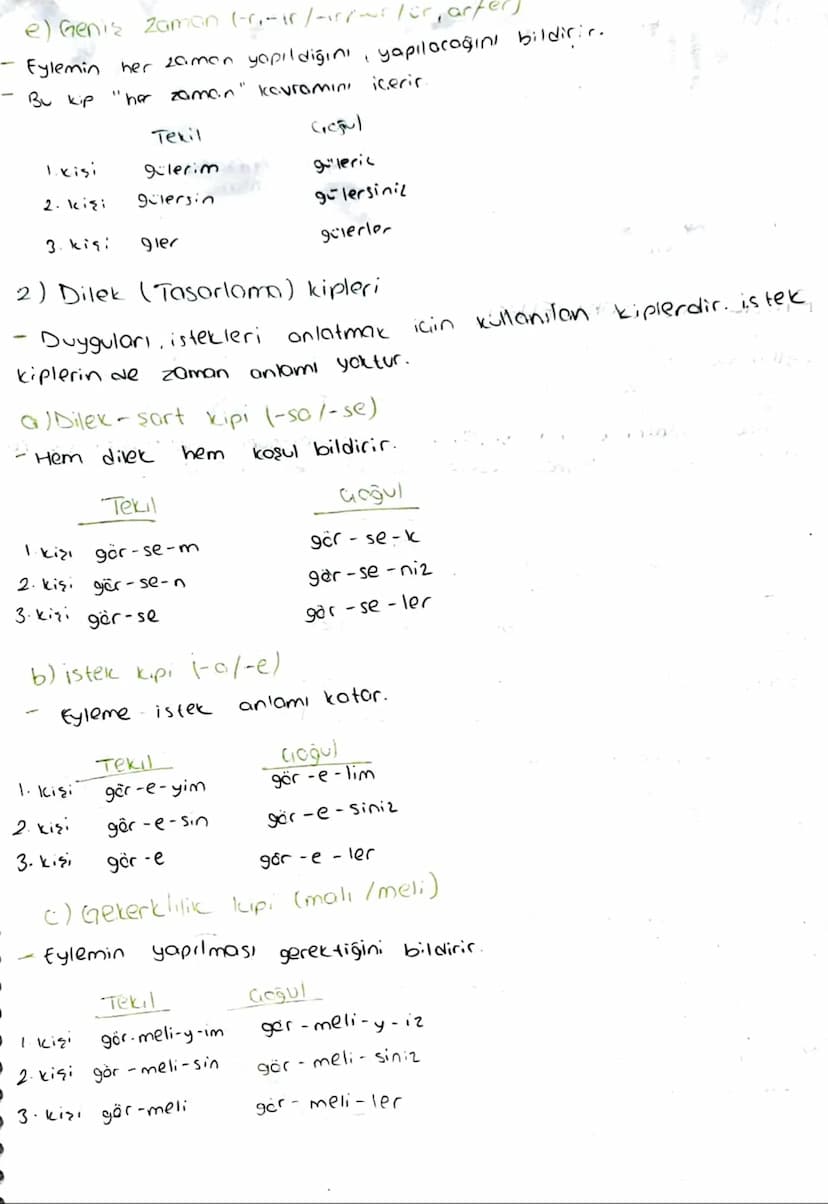 e) Geniş zaman (-r, -ır / -ir / -ur / ür, ar/er)
- Eylemin her zaman yapıldığını, yapılacağını bildirir.
- Bu kip "her zaman" kavramını içerir.
Tekil Çoğul
1. kişi gülerim güleriz
2. kişi gülersin gülersiniz
3. kişi gler gülerler
2) Dilek (Tasarlama) kipleri
- Duyguları, istekleri anlatmak için kullanılan kiplerdir. istek
kiplerin de zaman anlamı yoktur.
a) Dilek - şart kipi (-sa/-se)
- Hem dilek hem koşul bildirir.
Tekil Çoğul
1. kişi gör-se-m gör-se-k
2. kişi gör-se-n gör-se-niz
3. kişi gör-se gör-se-ler
b) istek kipi (-a/-e)
- Eyleme istek anlamı katar.
Tekil Çoğul
1. kişi gör-e-yim gör-e-lim
2. kişi gör-e-sin gör-e-siniz
3. kişi gör-e gör-e-ler
c) Gekerklilik kipi (malı /meli)
- Eylemin yapılması gerektiğini bildirir.
Tekil Çoğul
1. kişi gör-meli-y-im gör-meli-y-iz
2. kişi gör-meli-sin gör-meli-siniz
3. kişi gör-meli gör-meli-ler